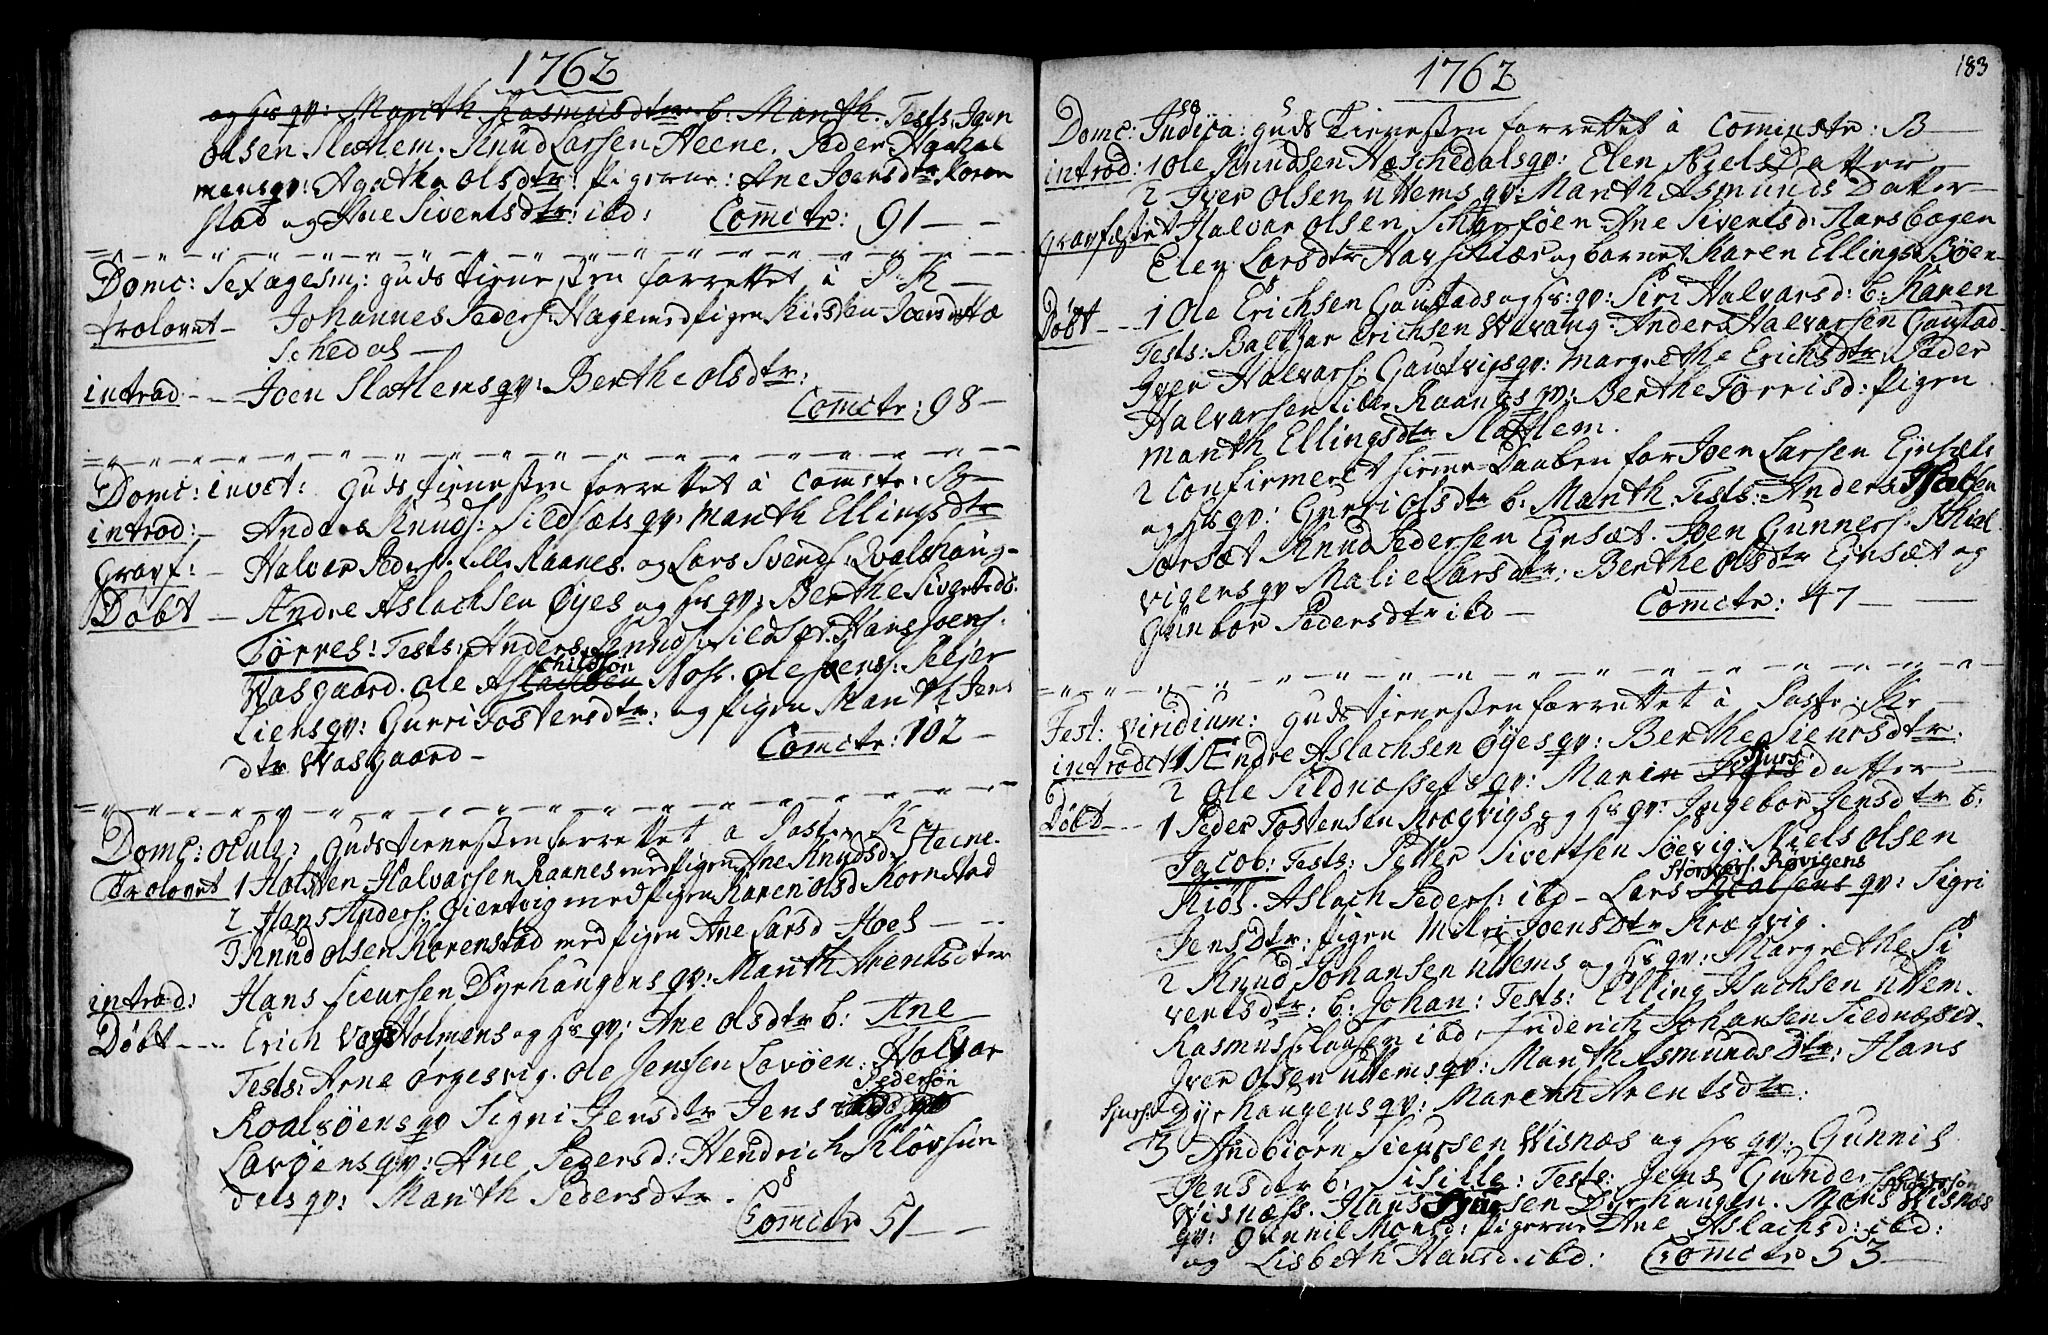 1762
og Hs qv: Marith Rasmusdtr b: Marith. Tests: Joen
olsen Slatlem. Knud Larsen Heene. Peder
mens qv: Agathe olsdtr: Pigerne: Ane Joensdtr Koren
stad og Ane Sivertsdtr: ibd: Comctr: 91
Domc: Sexagesm: guds tienesten forrettet i P. K
trolovet Johannes Peders: Hagen med Pigen Kirsten Joensdtr Hæ
schedal
introd: Joen Slatlems qv: Berthe olsdtr:
Comctr: 98
Domc: invoc: guds tienesten forrettet i Comstr: B
introd: Anders Knuds: Sildsæts qv: Marith Ellingsdtr
Gravf: Halvor Peders: lille Raanes. og Lars Svends: Qvalshaug
Døbt Andre Aslachsen Øyes og Hs qv: Berthe Sivertsd b:
Tørres: Tests: Anders Knuds: Sildset. Hans Joens:
childsøn
Wasgaard. ole Aslachsen Nost. ole Joens: Seljer
Liens qv: Gurri Tostensdtr: og Pigen Marith Jens
dtr Wasgaard Comctr: 102
Domc: oculi: guds tienesten forrettet a Pastr K
Trolovet 1 Halsten Halvarsen Raanes med Pigen Ane Knudsd Heene.
2 Hans Anders: Giervig med Pigen Karen olsd Kornstad
3 Knud olsen Korenstad med Pigen Ane Larsd Hoes
introd: Hans Siursen Dyrhaugens qv: Marith Arentsdter
Døbt Erich Vogsholmens og Hs qv: Ane olsdtr b: Ane
Tests: Arne orgesvig. ole Jensen Lovøen: Halvor
Pedersøn
Roalsøens qv Sigri Jensdtr Jens
Lovøens qv: Ane Pedersd: Hendrich Kløvfun
dets qv: Marith Pedersdtr.
Comctr 51
1762
183
Domc: Judica: guds Tienesten forrettet i Cominstr: B
introd: 1 ole Knudsen Hæschedals qv: Elen Niels Datter
2 Iver olsen uttems qv: Marith Asmunds Datter
Gravfæstet Halvor olsen Ane Sivertsd: Aarsbogen
Elen Larsdtr Havschiær og barnet Karen Ellingsd Søen
Døbt 1 Ole Erichsen Gaustads og Hs: qv: Siri Halvarsd: b: Karen
Tests: Baltzar Erichsen Wevang. Anders Halvarsen Gaustad
Iver Halvars: Gautvigs qv: Margrethe Erichsdtr: Peder
Halvarsen lille Raanes qv: Berthe Torrisd: Pigen
Marith Ellingsdtr Slatlem.
2 Confirmeret hieme Daaben for Joen Larsen Ejnsæt
og Hs qv: Guri olsdtr b: Marith. Tests: Anders
Torsæt Knud Pedersen Ejnsæt. Joen Gunners: Khiel
vigens qv Malie Larsdtr: Berthe olsdtr Ejnsæt og
Gunbor Pedersdtr ibd Comctr: 47
Fest: Viridium: guds tienesten forrettet i Pastr: K
introdct 1 Endre Aslachsen Øyes qv: Berthe Siursdtr.
Siurs
2 ole Sildnæssets qv: Marin datter
Døbt 1 Peder Tostensen Krægvigs og Hs qv: Ingebor Jensdtr b:
Jacob: Tests: Petter Sivertsen Søevig: Niels olsen
Storchers: Røvigens
Kiøl. Aslach Peders: ibd. Lars qv: Sigri
Jensdtr: Pigen Mari Joensdtr Krægvig.
2 Knud Johansen uttems og Hs qv: Margrethe Si
vertsdtr: b: Johan: Tests: Elling Isachsen uttem.
Rasmus Clausen ibd. friderich Johansen Sildnæset.
Iver olsen uttems qv: Marith Asmundsdtr: Hans
Siurs: Dyrhaugens qv: Marith Arentsdtr:
3 Andbiørn Siursen Wisnæs og Hs qv: Gunnil
Jensdtr b: Sisille: Tests: Jens Gunders:
Andersøn
Wisnæs. Hans Siursen Dyrhaugen. Mons Wisnæs
qv: Gunnil Monsd: Pigerne Ane Aslachsd: ibd:
og Lisbeth Hansd. ibd: Comctr 53